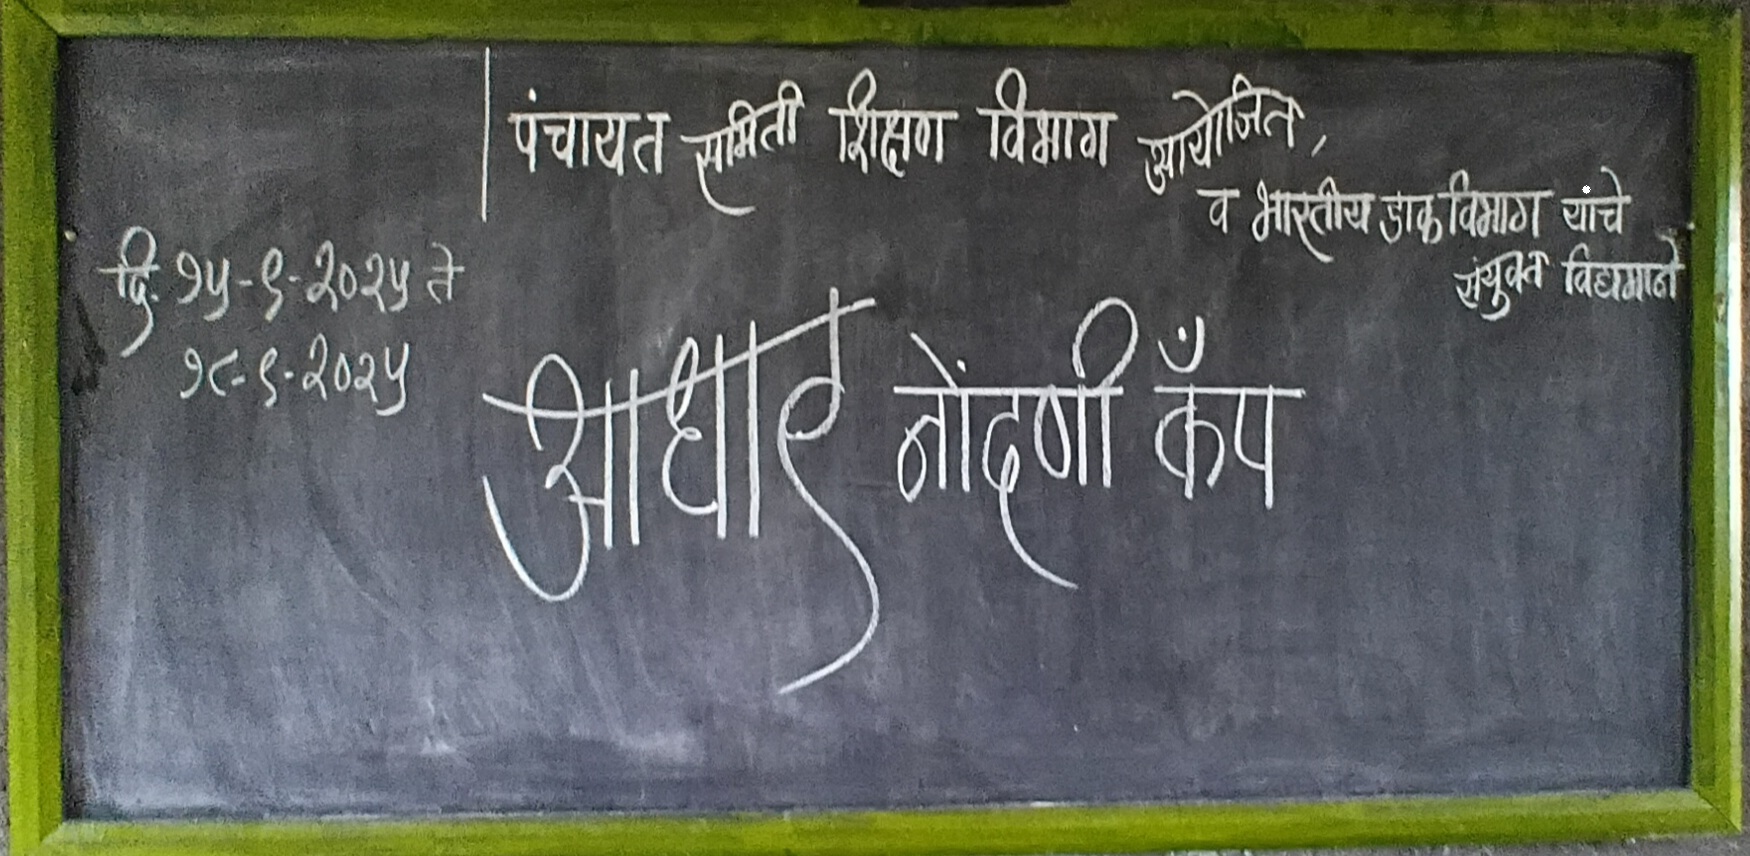 पंचायत समिती शिक्षण विभाग आयोजित,
व भारतीय डाक विभाग यांचे
संयुक्त विद्यमाने
दि. १५-९-२०२५ ते
१८-९-२०२५
आधार नोंदणी कॅंप